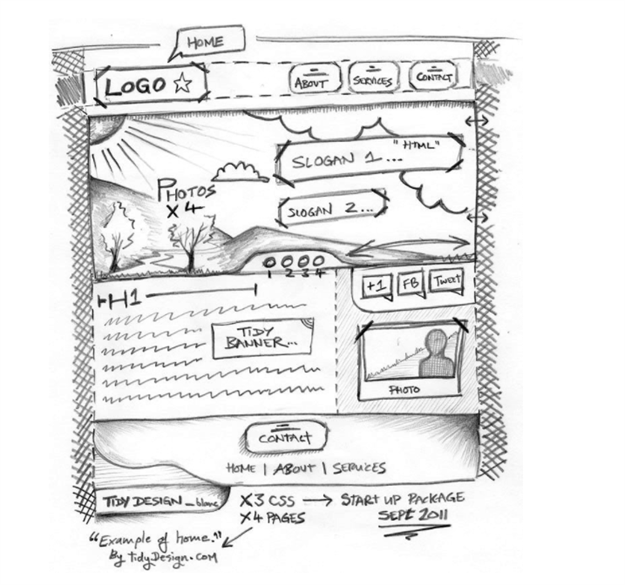 HOME
LOGO
ABOUT
SERVICES
CONTACT
"HTML"
SLOGAN 1...
PHOTOS
X4
SLOGAN 2...
1 2 3 4
H1
+1
FB
TWEET
TIDY
BANNER...
PHOTO
CONTACT
HOME | ABOUT | SERVICES
TIDY DESIGN_blanc
X3 CSS → START UP PACKAGE
X4 PAGES
SEPT 2011
"Example of home."
By tidyDesign.com